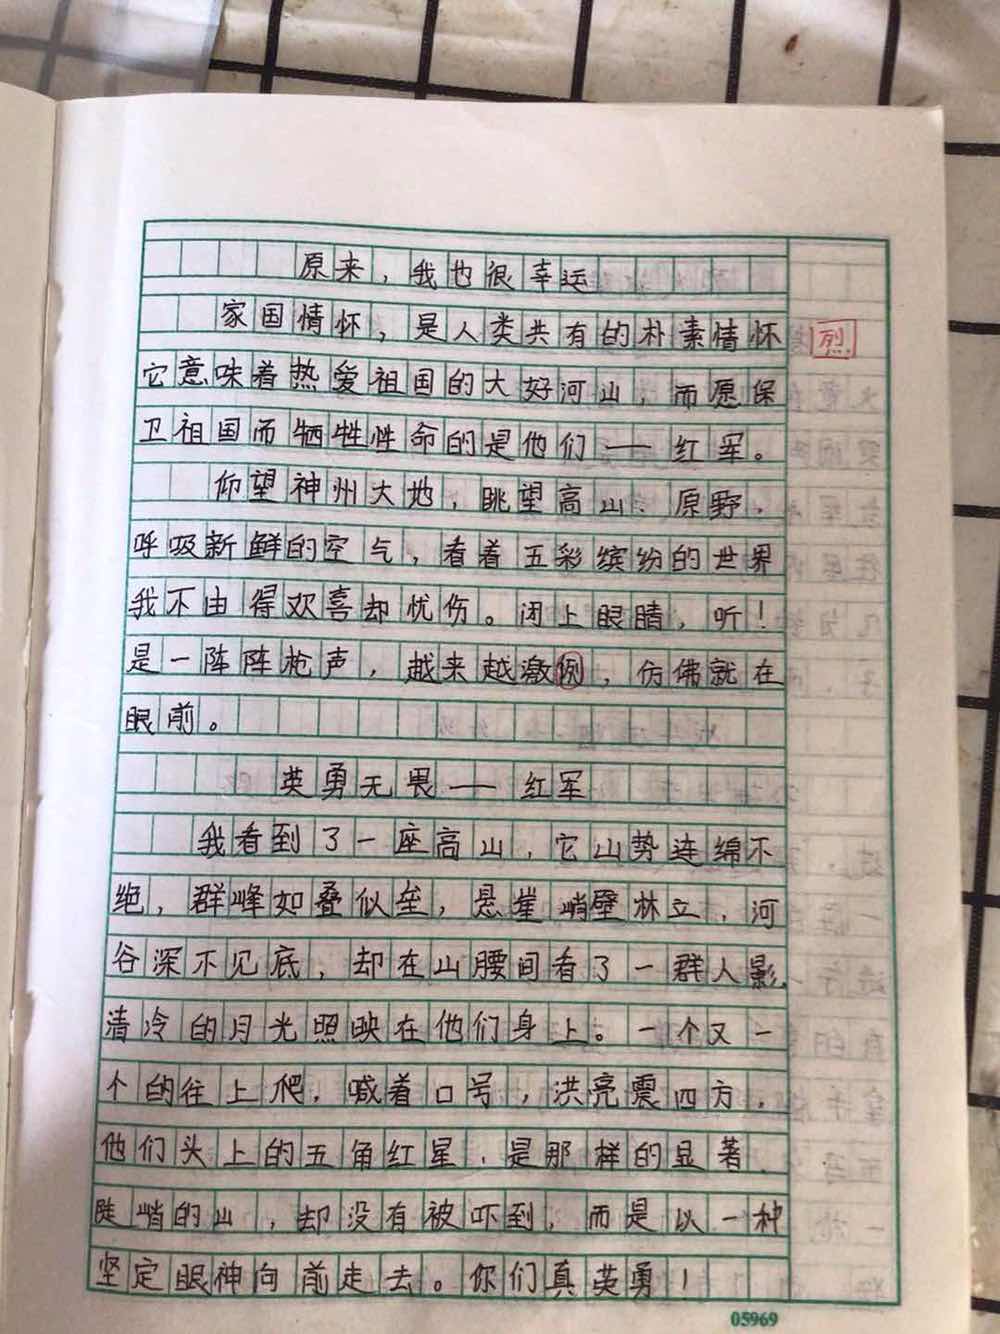 原来，我也很幸运
家国情怀，是人类共有的朴素情怀
烈
它意味着热爱祖国的大好河山，而愿保
卫祖国而牺牲性命的是他们——红军。
仰望神州大地，眺望高山、原野，
呼吸新鲜的空气，看着五彩缤纷的世界
我不由得欢喜却忧伤。闭上眼睛，听！
是一阵阵枪声，越来越激例，仿佛就在
眼前。
英勇无畏——红军
我看到了一座高山，它山势连绵不
绝，群峰如叠似垒，悬崖峭壁林立，河
谷深不见底，却在山腰间看了一群人影，
清冷的月光照映在他们身上。一个又一
个的往上爬，喊着口号，洪亮震四方，
他们头上的五角红星，是那样的显著
陡峭的山，却没有被吓到，而是以一种
坚定眼神向前走去。你们真英勇！
05969